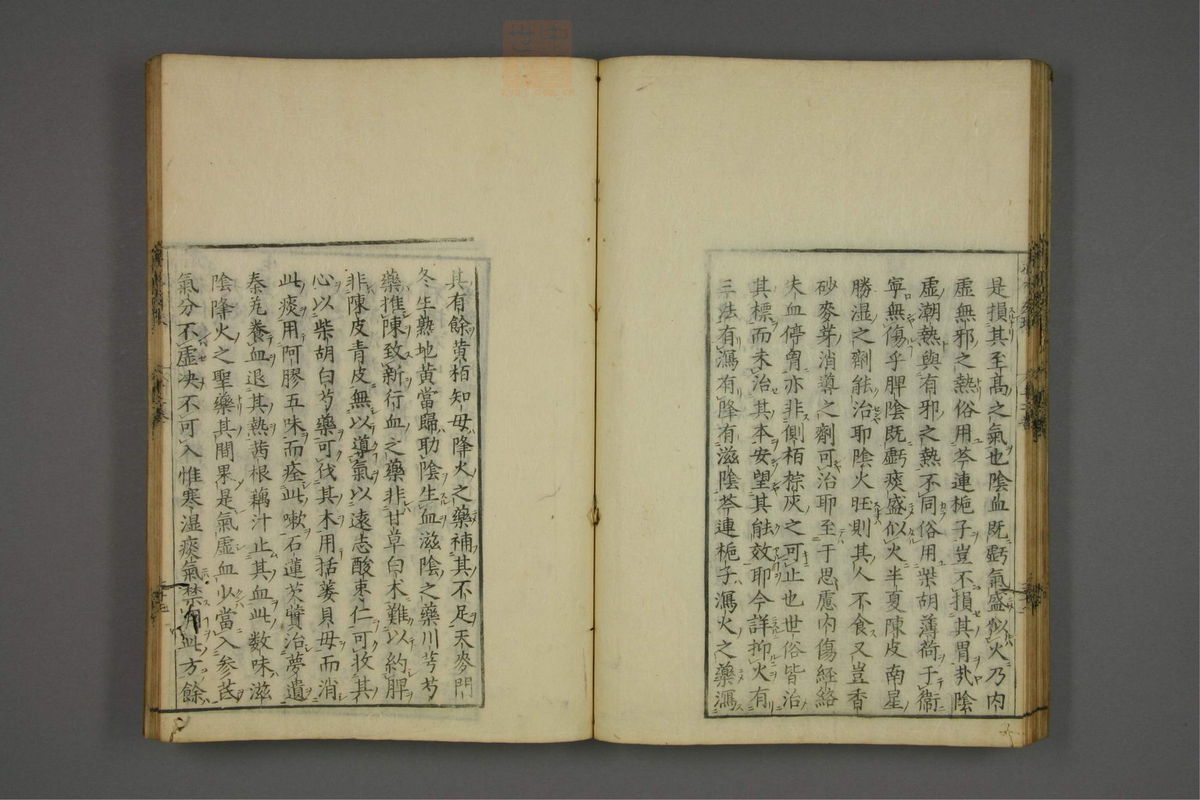 是損其至髙之氣也陰血既虧氣盛似火乃内
虛無邪之熱俗用芩連梔子豈不損其胃氣陰
虛潮熱與有邪之熱不同俗用柴胡薄荷于衛
寧無傷乎脾陰既虧痰盛似火半夏陳皮南星
勝湿之劑能治耶陰火旺則其人不食又豈香
砂麥芽消導之劑可治耶至于思慮内傷経絡
失血停胷亦非側栢棕灰之可止也世俗皆治
其標而未治其本安望其能效耶今詳抑火有
三法有瀉有降有滋陰芩連梔子瀉火之藥瀉
其有餘黄栢知母降火之藥補其不足天麥門
冬生熟地黄當歸助陰生血滋陰之藥川芎芍
藥推陳致新行血之藥非甘草白朮難以約脾
非陳皮青皮無以導氣以遠志酸枣仁可攻其
心以柴胡白芍藥可伐其木用括蔞貝母而消
此痰用阿膠五味而痊此嗽石蓮芡實治夢遺
秦艽養血退其熱茜根藕汁止其血此数味滋
陰降火之聖藥其間果是氣虛血少當入參芪
氣分不虛决不可入惟寒湿痰氣禁用此方餘